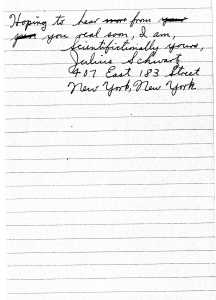 Hoping to hear more from your
your you real soon, I am,
Scientifictionally yours,
Julius Schwartz
407 East 183 Street
New York, New York.